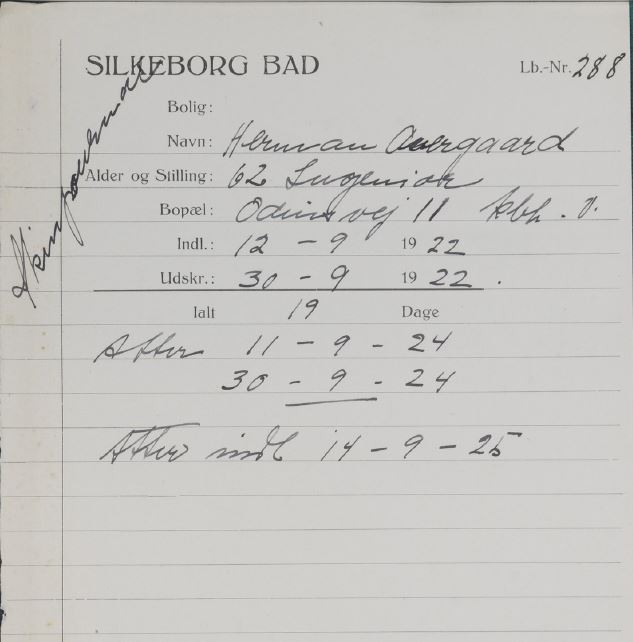 SILKEBORG BAD Lb.-Nr. 288
Bolig:
Navn: Herman Overgaard
Alder og Stilling: 62 Ingeniør
Bopæl: Odinsvej 11 Kbh. V.
Indl.: 12 - 9 1922
Udskr.: 30 - 9 1922.
Ialt 19 Dage
Atter 11 - 9 - 24
30 - 9 - 24
Atter indl 14 - 9 - 25